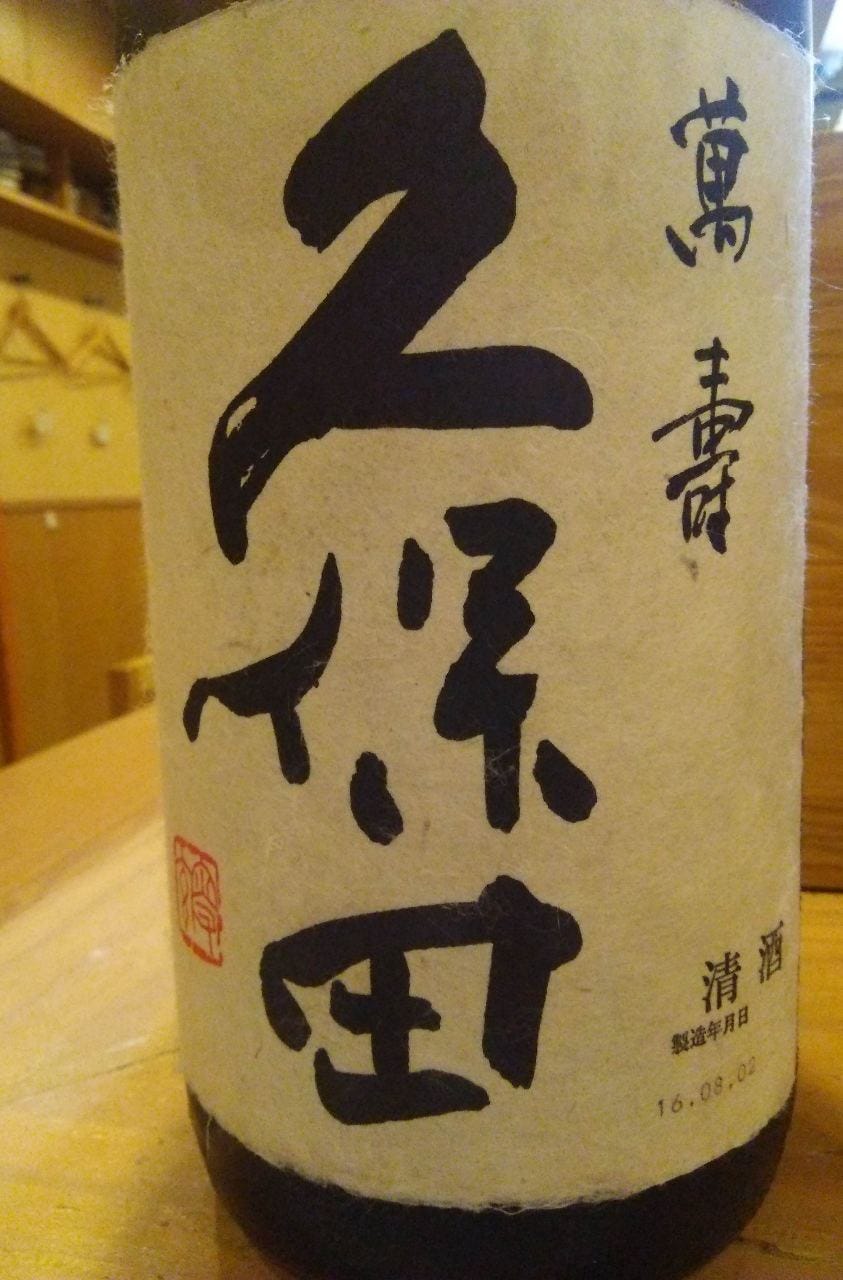 萬寿
久保田
清酒
製造年月日
16.08.02